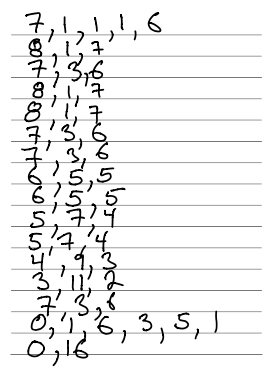 7,1,1,1,6
8,1,7
7,3,6
8,1,7
8,1,7
7,3,6
7,3,6
6,5,5
6,5,5
5,7,4
5,7,4
4,9,3
3,11,2
7,3,6
0,1,6,3,5,1
0,16